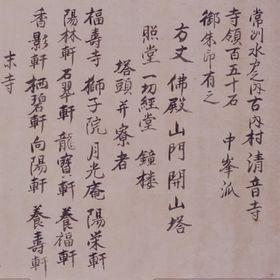 常州水戸之内古内村清音寺
寺領百五十石 中峯派
御朱印有之
方丈 佛殿 山門 開山塔
照堂 一切経堂 鐘楼
塔頭并寮者
福寿寺 獅子院 月光庵 陽栄軒
陽林軒 石翠軒 龍寳軒 養福軒
香影軒 栖碧軒 向陽軒 養壽軒
末寺